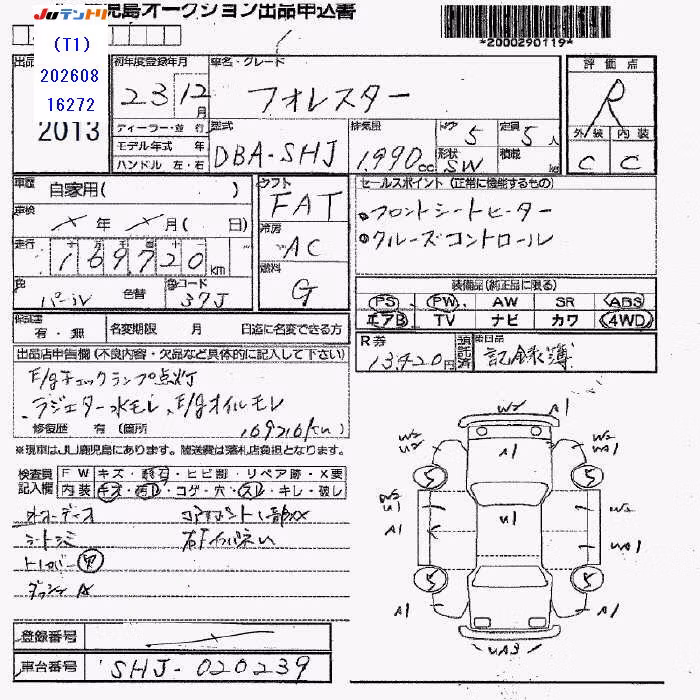 Juテントリ 児島オークション出品申込書
(T1)
202608
16272
2013
*2000290119*
初年度登録年月
23 12 月
車名・グレード
フォレスター
評価点
R
外装 内装
C C
ディーラー・並行
モデル年式 年
ハンドル 左・右
型式
DBA-SHJ
排気量
1,990cc
ドア 5
定員 5人
形状 SW
積載 kg
車歴 自家用( )
車検 × 年 × 月( 日)
走行 169720 km
色 パール 色替 色コード 37J
シフト FAT
冷房 AC
燃料 G
セールスポイント(正常に機能するもの)
フロントシートヒーター
クルーズコントロール
装備品(純正品に限る)
PS PW AW SR ABS
エアB TV ナビ カワ 4WD
保証書 有・無
名変期限 月 日迄に名変できる方
R券
13420円
預託済
後日品
記録簿
出品店申告欄(不良内容・欠品など具体的に記入して下さい)
E/gチェックランプ点灯
ラジエター水モレ、E/gオイルモレ
修復歴 有(箇所
※現車はJU鹿児島にあります。陸送費は落札店負担となります。
検査員記入欄
FW キズ・飛石・ヒビ割・リペア跡・X要
内装 キズ・汚れ・コゲ・穴・スレ・キレ・破し
オーディオ
シートシミ
W2 A1
A1
U1
5 5
5 5
W2
U1
A1
UA1
A1 A1
UA3
登録番号
車台番号 SHJ-020239